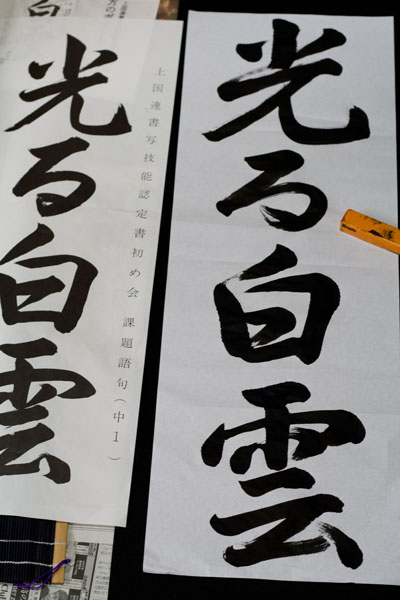 光る白雲
上国連書写技能認定書初め会 課題語句(中1)
光る白雲